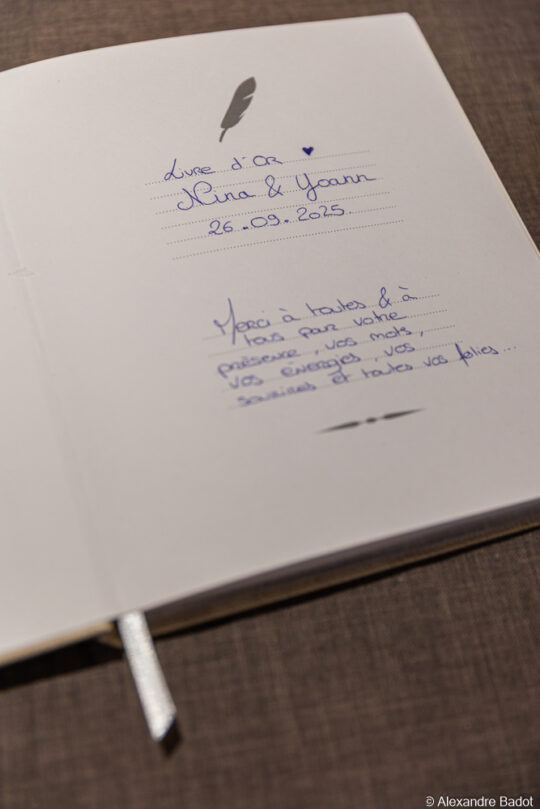 Livre d'Or
Nina & Yoann
26.09.2025
Merci à toutes & à
tous pour votre
présence, vos mots,
vos énergies, vos
sourires et toutes vos folies...
© Alexandre Badot